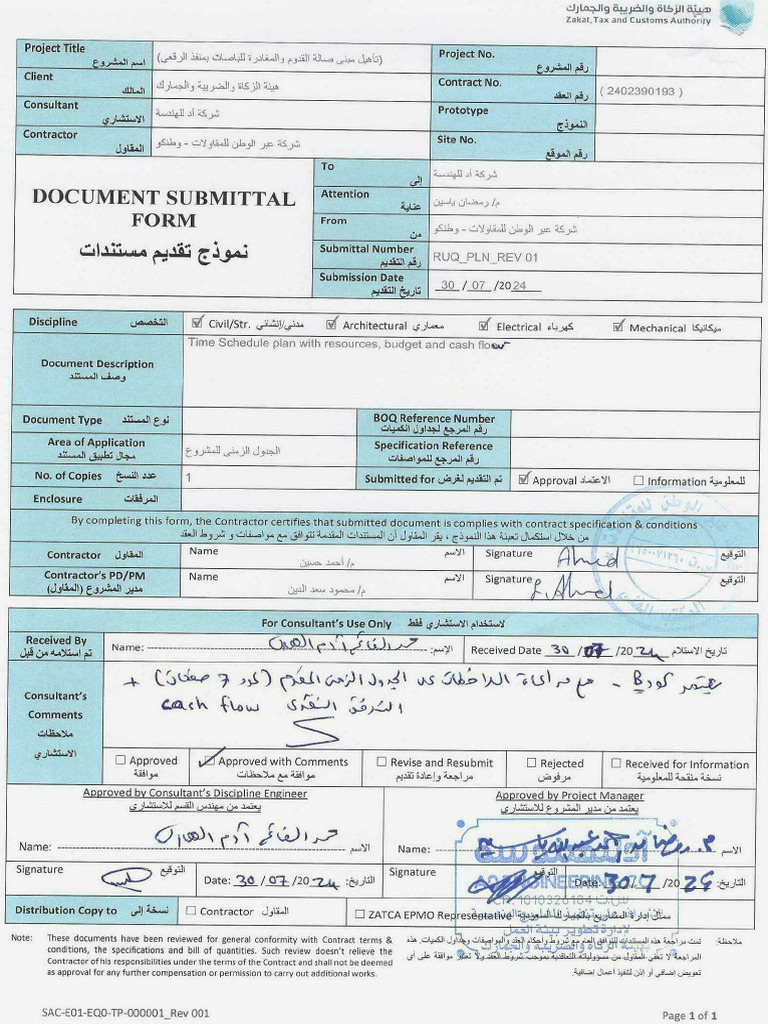 هيئة الزكاة والضريبة والجمارك
Zakat, Tax and Customs Authority
Project Title اسم المشروع (تأهيل مبنى صالة القدوم والمغادرة للباصات بمنفذ الرقعي) Project No. رقم المشروع
Client المالك هيئة الزكاة والضريبة والجمارك Contract No. رقم العقد ( 2402390193 )
Consultant الاستشاري شركة أد للهندسة Prototype النموذج
Contractor المقاول شركة عبر الوطن للمقاولات - وطنكو Site No. رقم الموقع
DOCUMENT SUBMITTAL FORM
نموذج تقديم مستندات
To إلى شركة أد للهندسة
Attention عناية م/ رمضان ياسين
From من شركة عبر الوطن للمقاولات - وطنكو
Submittal Number رقم التقديم RUQ_PLN_REV 01
Submission Date تاريخ التقديم 30 / 07 /2024
Discipline التخصص ☑ Civil/Str. مدني/إنشائي ☑ Architectural معماري ☑ Electrical كهرباء ☑ Mechanical ميكانيكا
Document Description وصف المستند
Time Schedule plan with resources, budget and cash flow
Document Type نوع المستند BOQ Reference Number رقم المرجع لجداول الكميات
Area of Application مجال تطبيق المستند الجدول الزمني للمشروع Specification Reference رقم المرجع للمواصفات
No. of Copies عدد النسخ 1 Submitted for تم التقديم لغرض ☑ Approval الاعتماد ☐ Information للمعلومية
Enclosure المرفقات
By completing this form, the Contractor certifies that submitted document is complies with contract specification & conditions
من خلال استكمال تعبئة هذا النموذج ، يقر المقاول أن المستندات المقدمة تتوافق مع مواصفات و شروط العقد
Contractor المقاول Name الاسم م/ أحمد حسين Signature التوقيع Ahmed
Contractor's PD/PM مدير المشروع (المقاول) Name الاسم م/ محمود سعد الدين Signature التوقيع
For Consultant's Use Only لاستخدام الاستشاري فقط
Received By تم استلامه من قبل Name: الاسم: Received Date 30 / 07 /2024 تاريخ الاستلام
Consultant's Comments ملاحظات الاستشاري
يعتمد كود B - مع مراعاة الملاحظات على الجدول الزمني المقدم (عدد 7 صفحات) +
التدفق النقدي cash flow
☐ Approved موافقة ☑ Approved with Comments موافقة مع ملاحظات ☐ Revise and Resubmit مراجعة وإعادة تقديم ☐ Rejected مرفوض ☐ Received for Information نسخة منقحة للمعلومية
Approved by Consultant's Discipline Engineer
يعتمد من مهندس القسم للاستشاري
Approved by Project Manager
يعتمد من مدير المشروع للاستشاري
Name: الاسم Name: الاسم
Signature التوقيع Date: 30 / 07 / 2024 التاريخ: Signature التوقيع Date: 30 7 2024 التاريخ:
Distribution Copy to نسخة إلى ☐ Contractor المقاول ☐ ZATCA EPMO Representative
Note: These documents have been reviewed for general conformity with Contract terms & conditions, the specifications and bill of quantities. Such review doesn't relieve the Contractor of his responsibilities under the terms of the Contract and shall not be deemed as approval for any further compensation or permission to carry out additional works.
ملاحظة: تمت مراجعة هذه المستندات للتوافق العام مع شروط وأحكام العقد والمواصفات وجداول الكميات. هذه المراجعة لا تخفي المقاول من مسؤولياته التعاقدية بموجب شروط العقد ولا تعتبر موافقة على أي تعويض إضافي أو إذن لتنفيذ أعمال إضافية.
SAC-E01-EQ0-TP-000001_Rev 001
Page 1 of 1